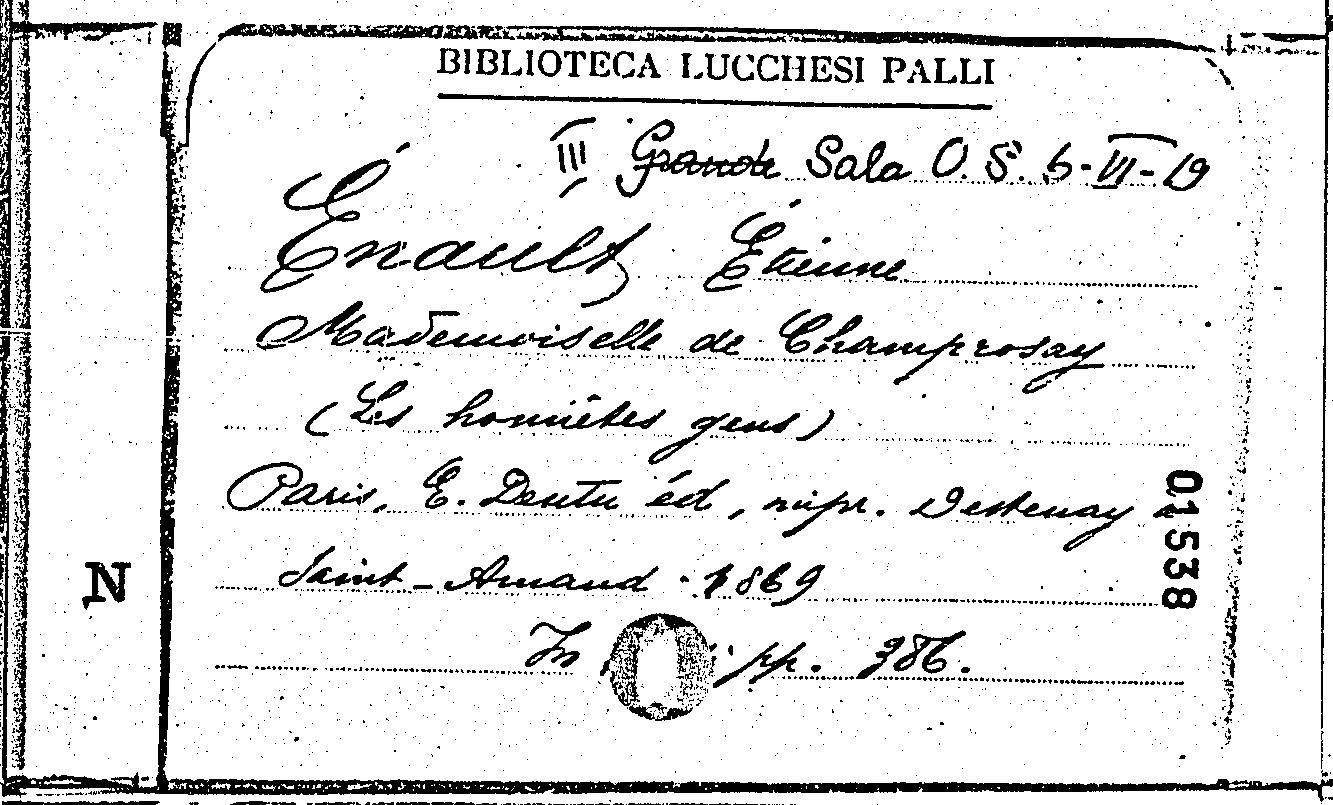 BIBLIOTECA LUCCHESI PALLI
III Grande Sala O. S. 5-VI-19
Énault Étienne
Mademoiselle de Champrosay
(Les honnêtes gens)
Paris, E. Dentu éd, impr. Destenay à
Saint-Amand. 1869
In pp. 386.
01538
N